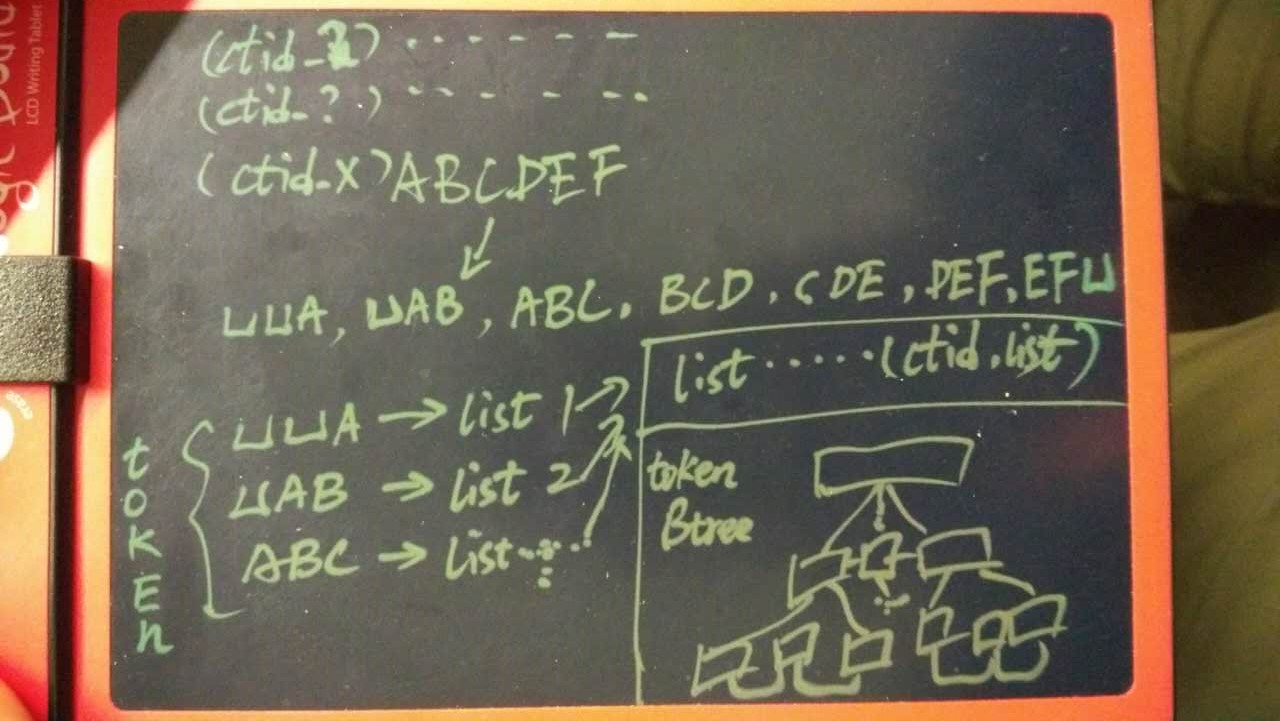 LCD Writing Tablet
(ctid_2) ‥‥‥
(ctid_?) ‥‥‥
(ctid_X) ABCDEF
␣␣A, ␣AB, ABC, BCD, CDE, DEF, EF␣
list ····· (ctid,list)
token
␣␣A → list 1
␣AB → list 2
ABC → list ···
token
Btree